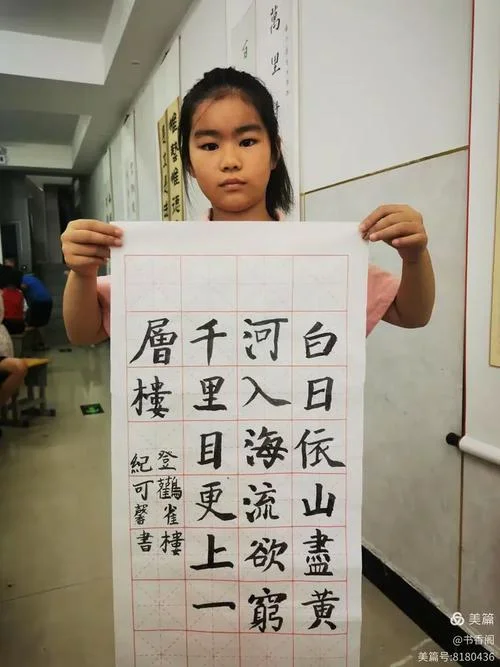 白日依山盡黄
河入海流欲窮
千里目更上一
層樓
登鸛雀樓
紀可馨書
萬里
白
美篇
@书香阁
美篇号:8180436